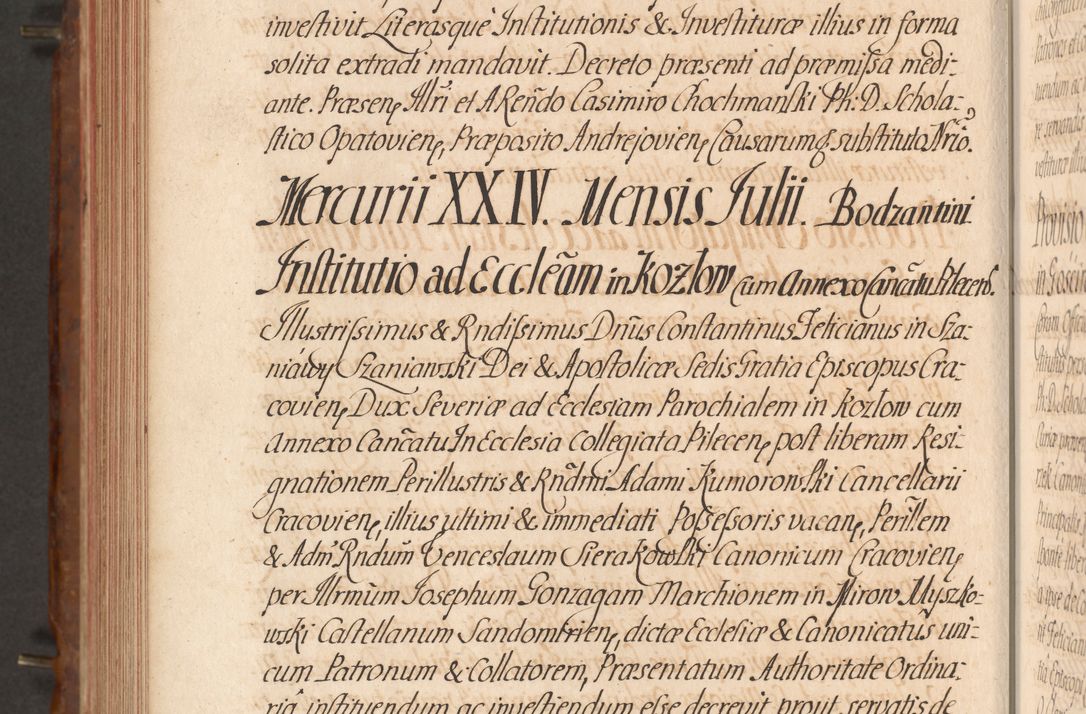 investivit Literasque Institutionis & Investituræ illius in forma
solita extradi mandavit. Decreto præsenti ad præmissa medi-
ante. Præsenę Illri et A Reñdo Casimiro Chochmanski Ph: D. Schola-
stico Opatovienę, Præposito Andrejovienę Causarumq substituto Nrio.
Mercurii XXIV. Mensis Julii. Bodzantini
Institutio ad Eccleãm in Kozlow cum Annexo Cañcatu Pilecens.
Illustrissimus & Rndissimus Dnûs Constantinus Felicianus in Sza-
niawy Szaniawski Dei & Apostolicæ Sedis Gratia Episcopus Cra-
covienę Dux Severiæ ad Ecclesiam Parochialem in Kozlow cum
Annexo Cañcatu In Ecclesia Collegiata Pilecenę post liberam Resi-
gnationem Perillustris & Rñdmi Adami Kumorowski Cancellarii
Cracovienę, illius ultimi & immediati Possessoris vacanę, Perillem
& Adm Rndum Venceslaum Sierakowski Canonicum Cracovienę
per Illrmum Josephum Gonzagam Marchionem in Mirow Myszko-
wski Castellanum Sandomirienę, dictæ Ecclesiæ & Canonicatûs uni-
cum Patronum & Collatorem, Præsentatum Authoritate Ordina-
riâ instituendum ac investiendum esse decrevit prout servatis de